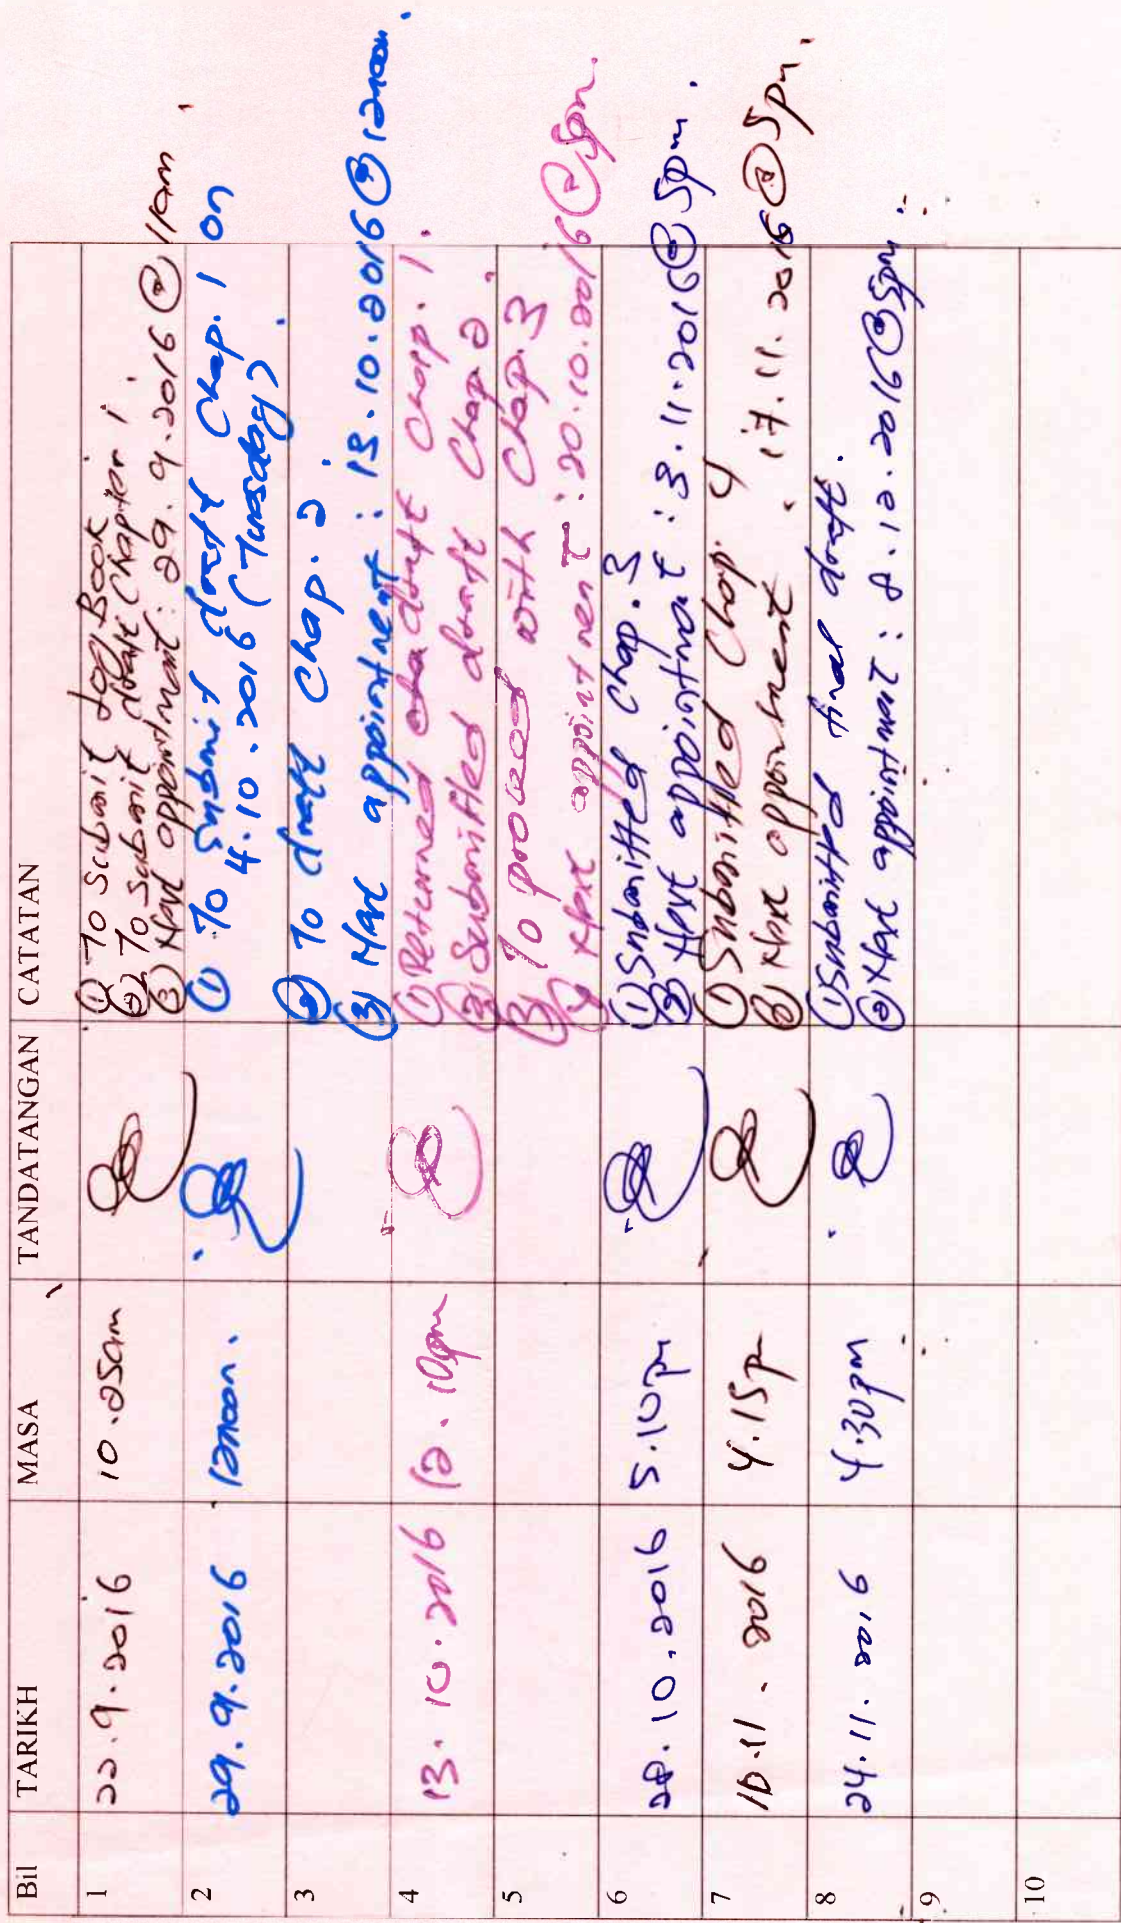 Bil TARIKH MASA TANDATANGAN CATATAN
1 22.9.2016 10.25am ① To submit Log Book
② To submit draft Chapter 1.
③ Next appointment: 29.9.2016 @ 11am
2 29.9.2016 12noon. ① To submit draft Chap. 1 on
4.10.2016 (Tuesday).
3 ② To draft Chap. 2.
③ Next appointment: 13.10.2016 @ 12noon.
4 13.10.2016 12.10pm ① Returned draft Chap. 1.
② Submitted draft Chap. 2.
5 ③ To proceed with Chap. 3
④ Next appointment: 20.10.2016 @ 5pm.
6 20.10.2016 5.10pm ① Submitted Chap. 3
② Next appointment: 3.11.2016 @ 5pm.
7 10.11.2016 4.15pm ① Submitted Chap. 4
② Next appointment: 17.11.2016 @ 5pm.
8 24.11.2016 4.30pm ① Submitted final draft.
② Next appointment: 8.12.2016 @ 5pm
9
10